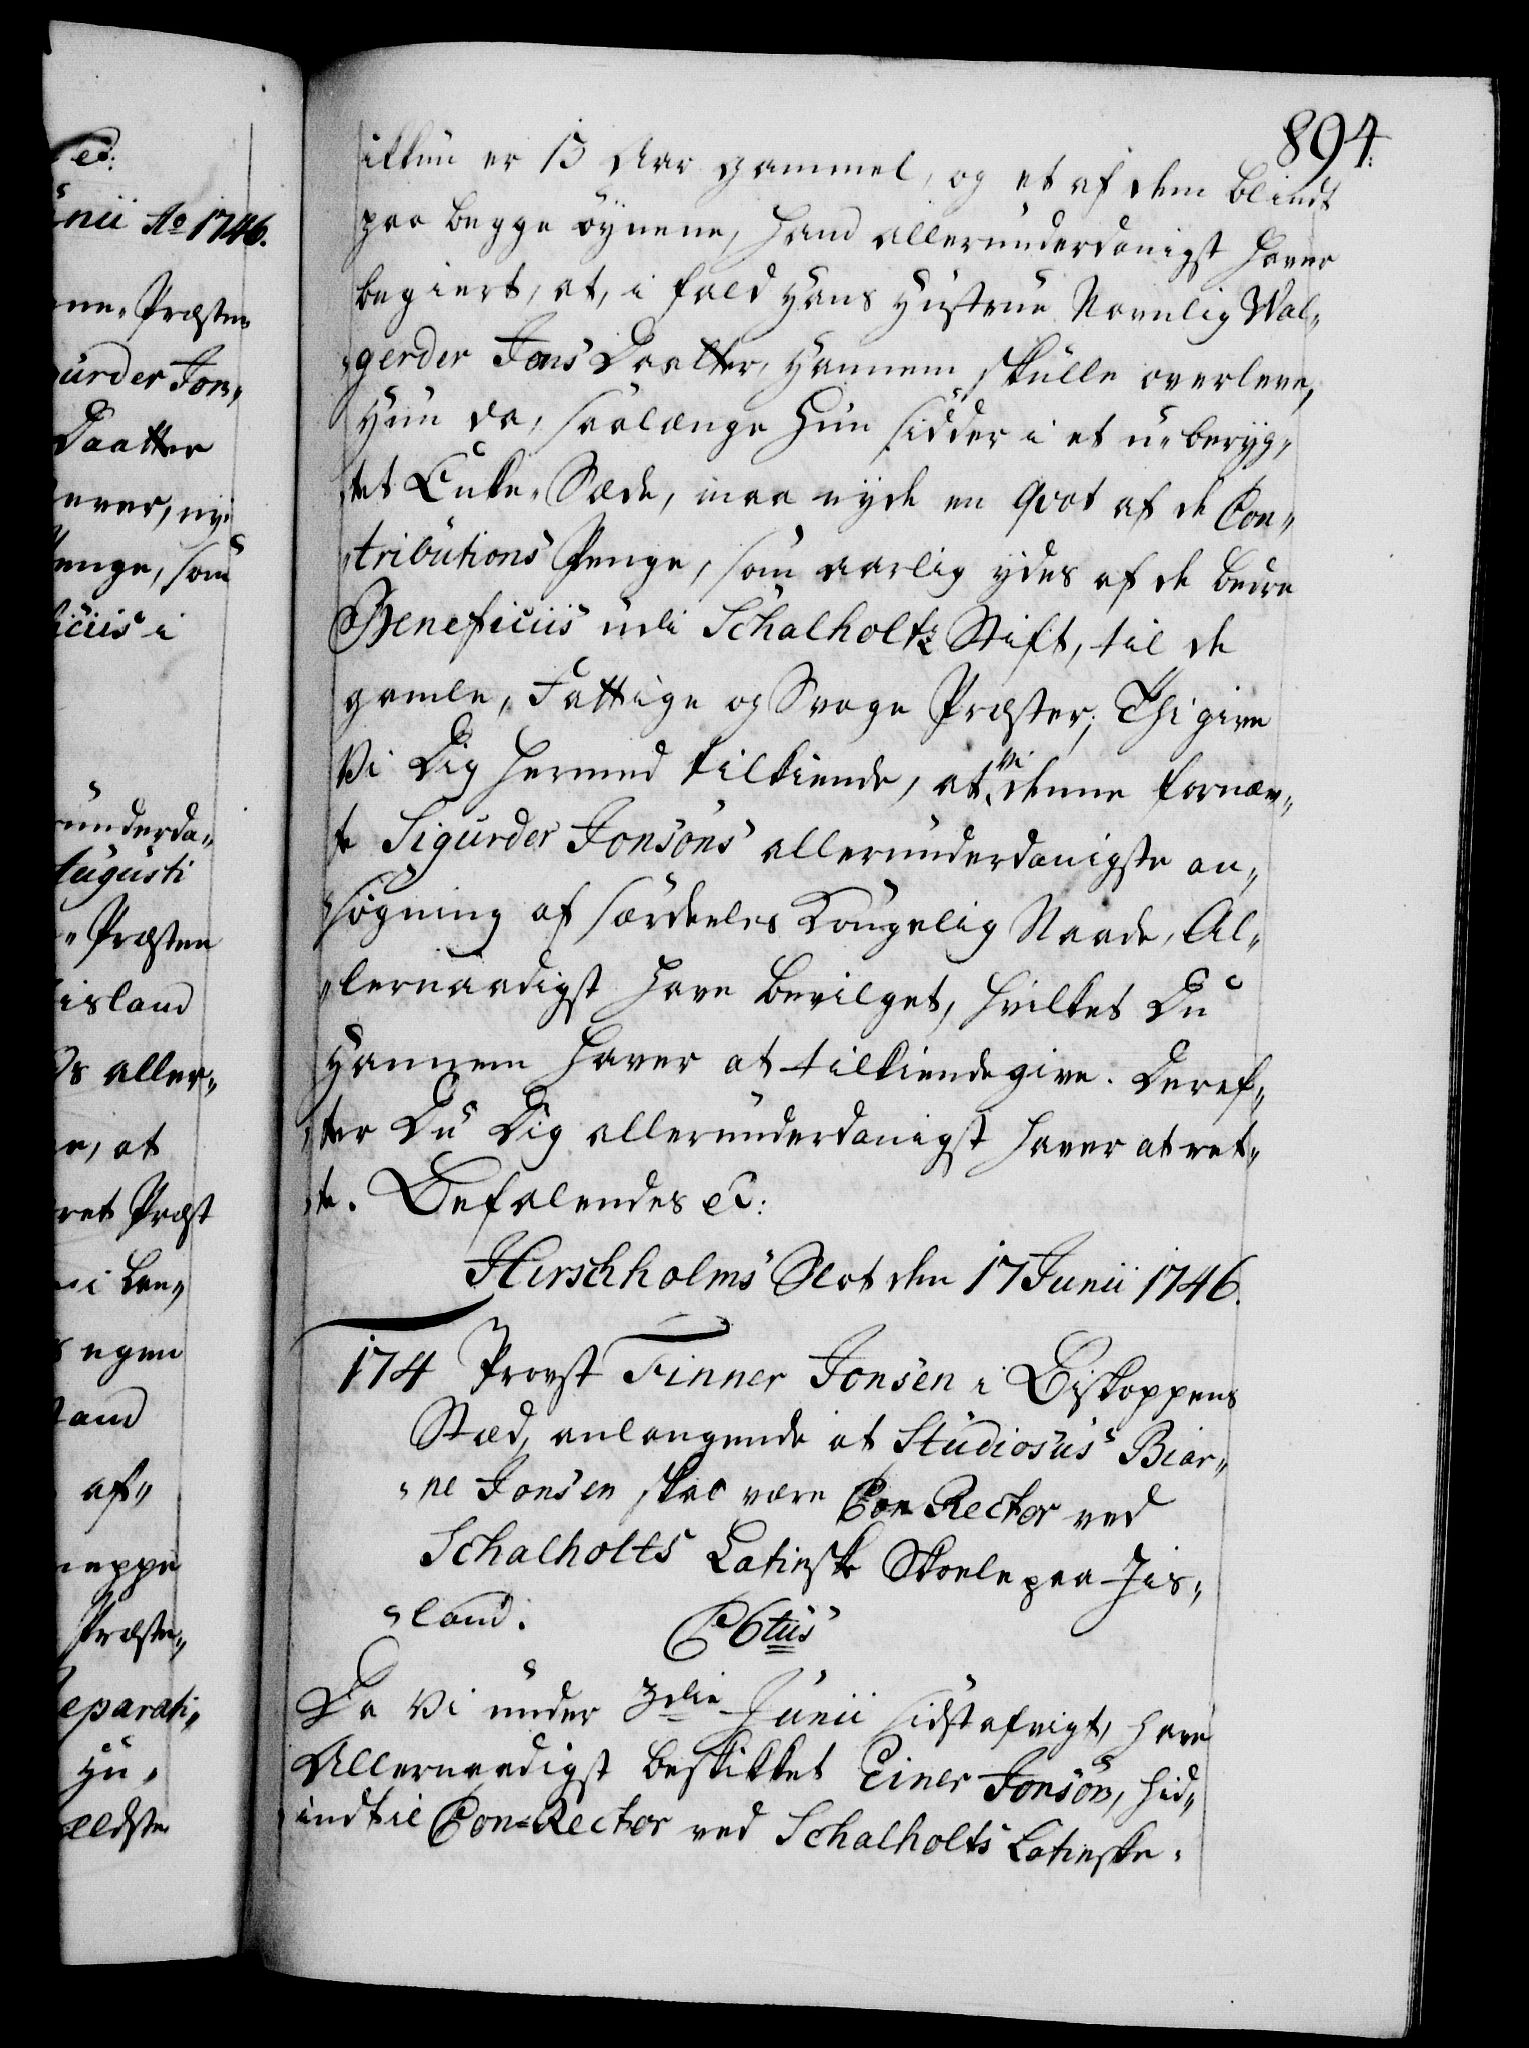 ec:
unii Ao 1746.
Præsten
urder Jon„
Daatter
penge, som
iciis i
underda„
Augusti
Præsten
island
Os aller„
at
ret Præst
i
egen
af„
Præste„
eparati„
Hu„
ældste
894.
ikkun er 13 Aar gammel, og et af dem blindt
paa begge øynene, hand allerunderdanigst haver
begiert, at, i fald Hans Hustrue Navnlig Wal„
„gerder Jons Daatter, Hannem skulle overleve,
Hun da, saalænge hun sidder i et u-beryg„
„tet Enke-Sæde, maa nyde en Qvot af de Con„
„tributions Penge, som aarlig ydes af de bedre
Beneficiis udi Schalholtz Stift, til de
gamle, Fattige og Svage Præster; Thi give
Vi Dig hermed tilkiende, at Vi denne fornæv„
„te Sigurder Jonsöns allerunderdanigste an„
„søgning af særdeeles Kongelig Naade, Al„
„lernaadigst have bevilget, hvilket Du
Hannem haver at tilkiendegive. Deref„
„ter Du Dig allerunderdanigst haver at ret„
„te. Befalendes ec:
Hirschholms Slot den 17 Junii 1746.
174 Provst Finner Jonsen i Biskoppens
Stæd, anlangende at Studiosus Biar„
„ne Jonsen skal være Con-Rector ved
Schalholts Latinske Skoele paa Jis„
„land.
C6tus
Da Vi under 3die Junii sidst afvigt, have
Allernaadigst beskikket Einer Jonsön, hid„
indtil Con-Rector ved Schalholts Latinske